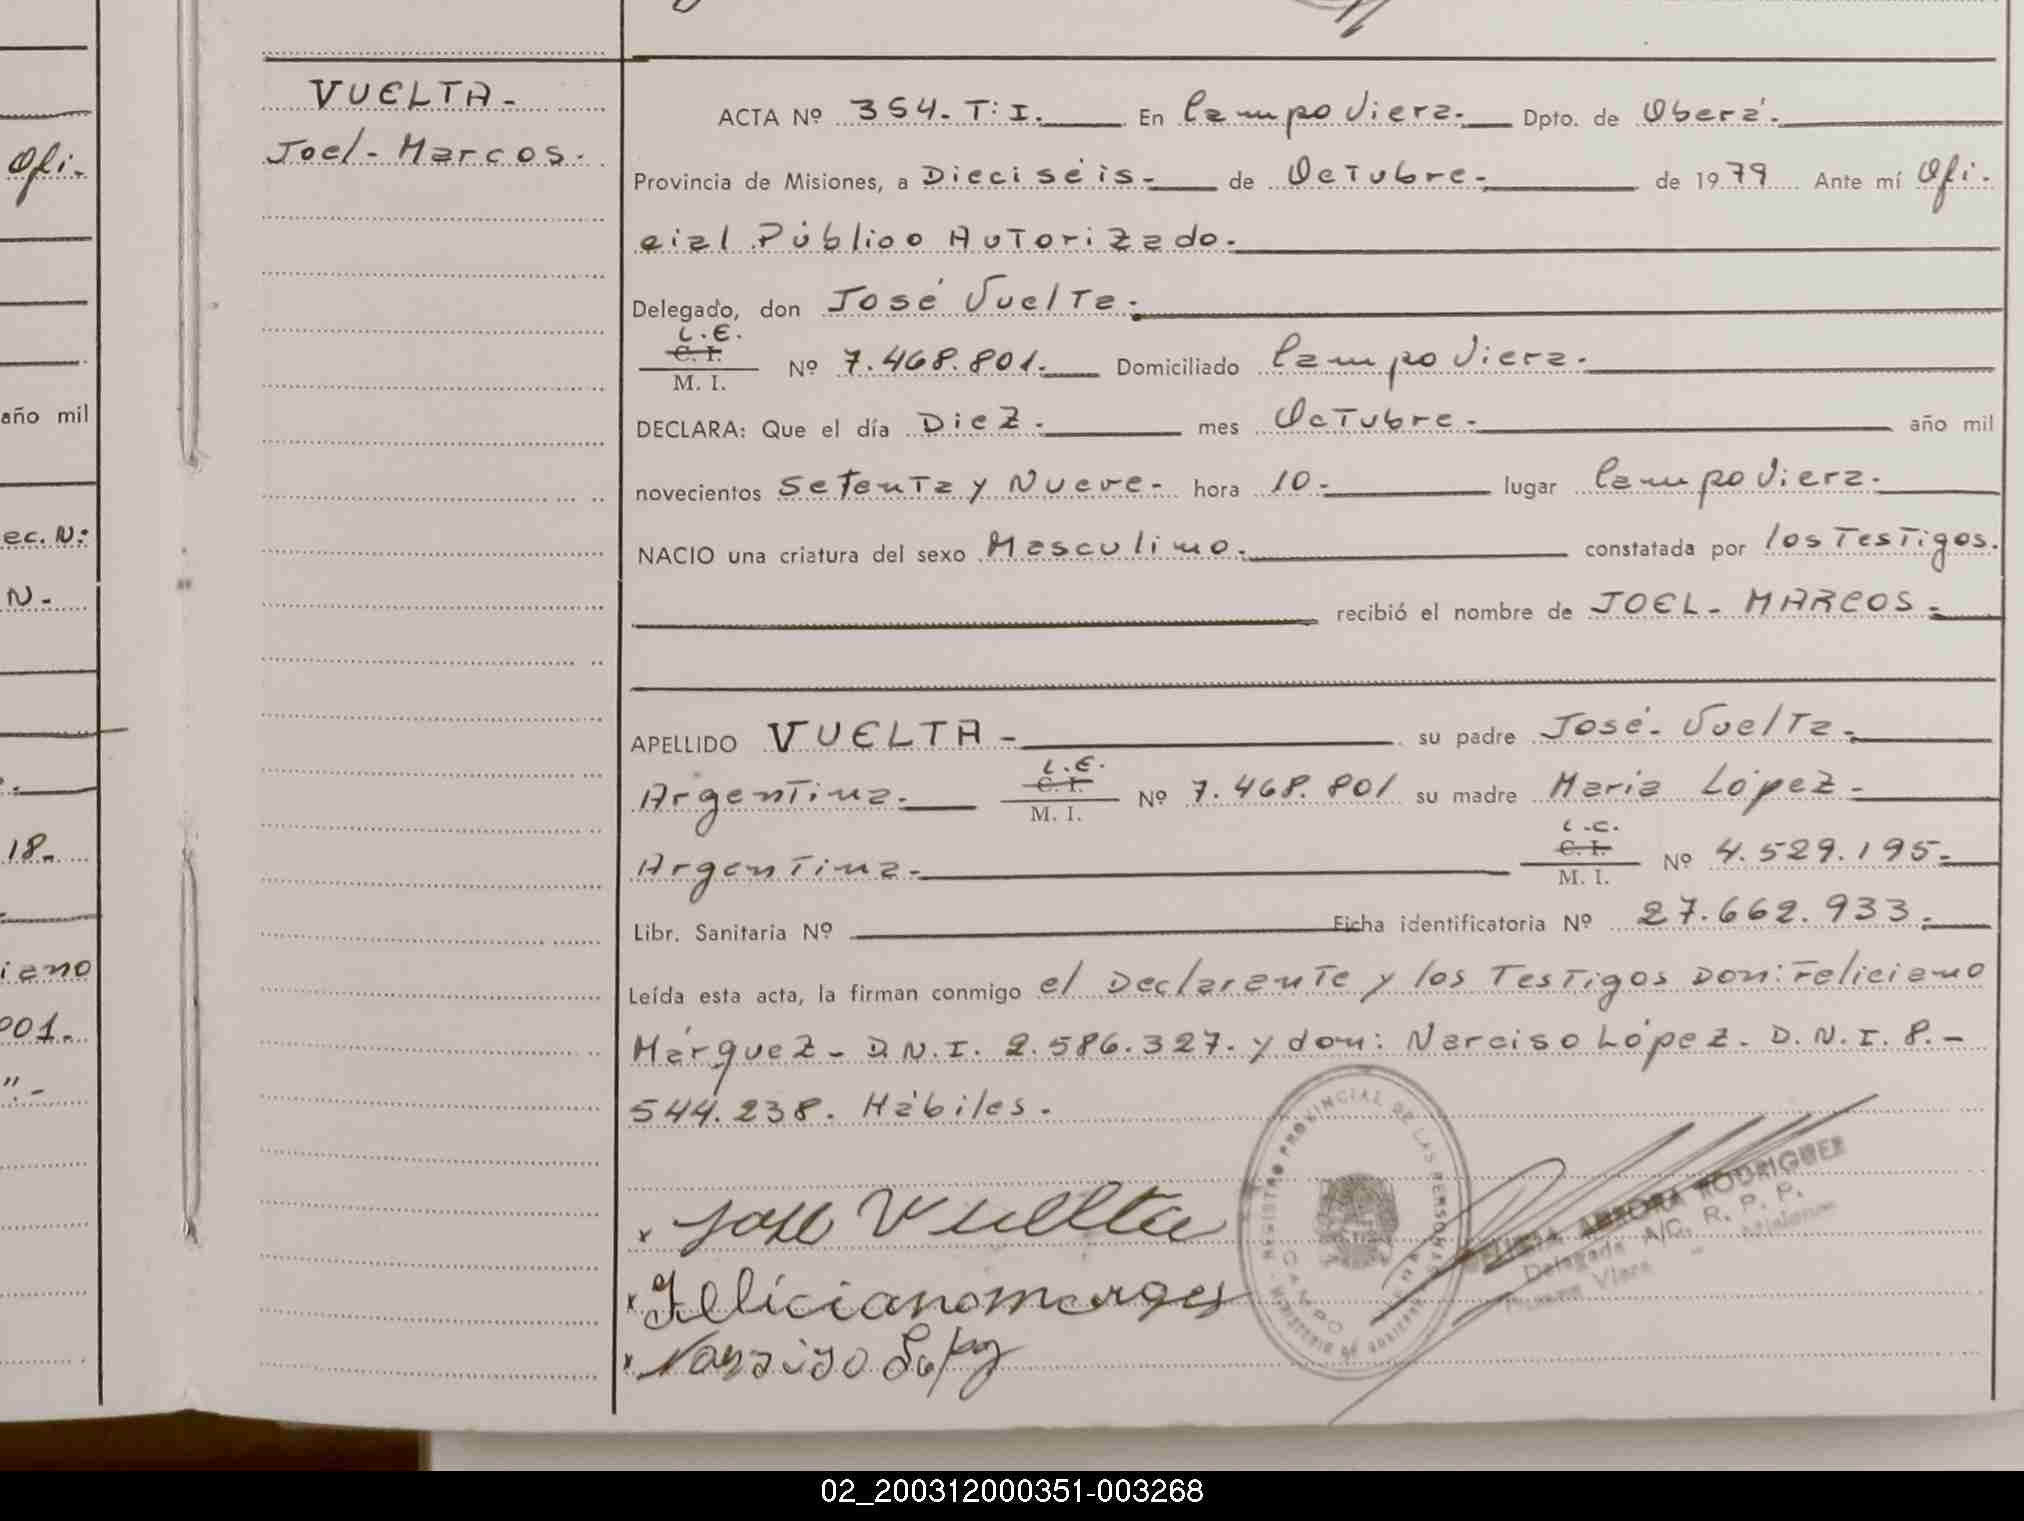 VUELTA-
Joel- Marcos-
ACTA Nº 354- T: I. En Campo Viera- Dpto. de Oberá-
Provincia de Misiones, a Dieciséis- de Octubre- de 1979 Ante mí Ofi-
cial Público Autorizado-
Delegado, don José Vuelta-
L.E.
C. I.
M. I.
Nº 7.468.801. Domiciliado Campo Viera-
DECLARA: Que el día Diez- mes Octubre- año mil
novecientos Setenta y Nueve- hora 10- lugar Campo Viera-
NACIO una criatura del sexo Masculino- constatada por los Testigos.
recibió el nombre de JOEL- MARCOS-
APELLIDO VUELTA- su padre José- Vuelta-
L.E.
C. I.
M. I.
Argentina- Nº 7.468.801 su madre María López-
L.C.
C. I.
M. I.
Argentina- Nº 4.529.195-
Libr. Sanitaria Nº Ficha identificatoria Nº 27.662.933-
Leída esta acta, la firman conmigo el Declarante y los Testigos Don: Feliciano
Márquez- D.N.I. 2.586.327. y don: Narciso López- D.N.I. 8.-
544.238. Hábiles.
x Jose Vuelta
x Felicianomarques
x
REGISTRO PROVINCIAL DE LAS PERSONAS
CAMPO
MINISTERIO DE GOBIERNO
AURORA RODRIGUEZ
Delegada A/C. R. P. P.
Viera Misiones
Ofi.
año mil
ec. N:
N-
18-
iano
001-
"-
02_200312000351-003268